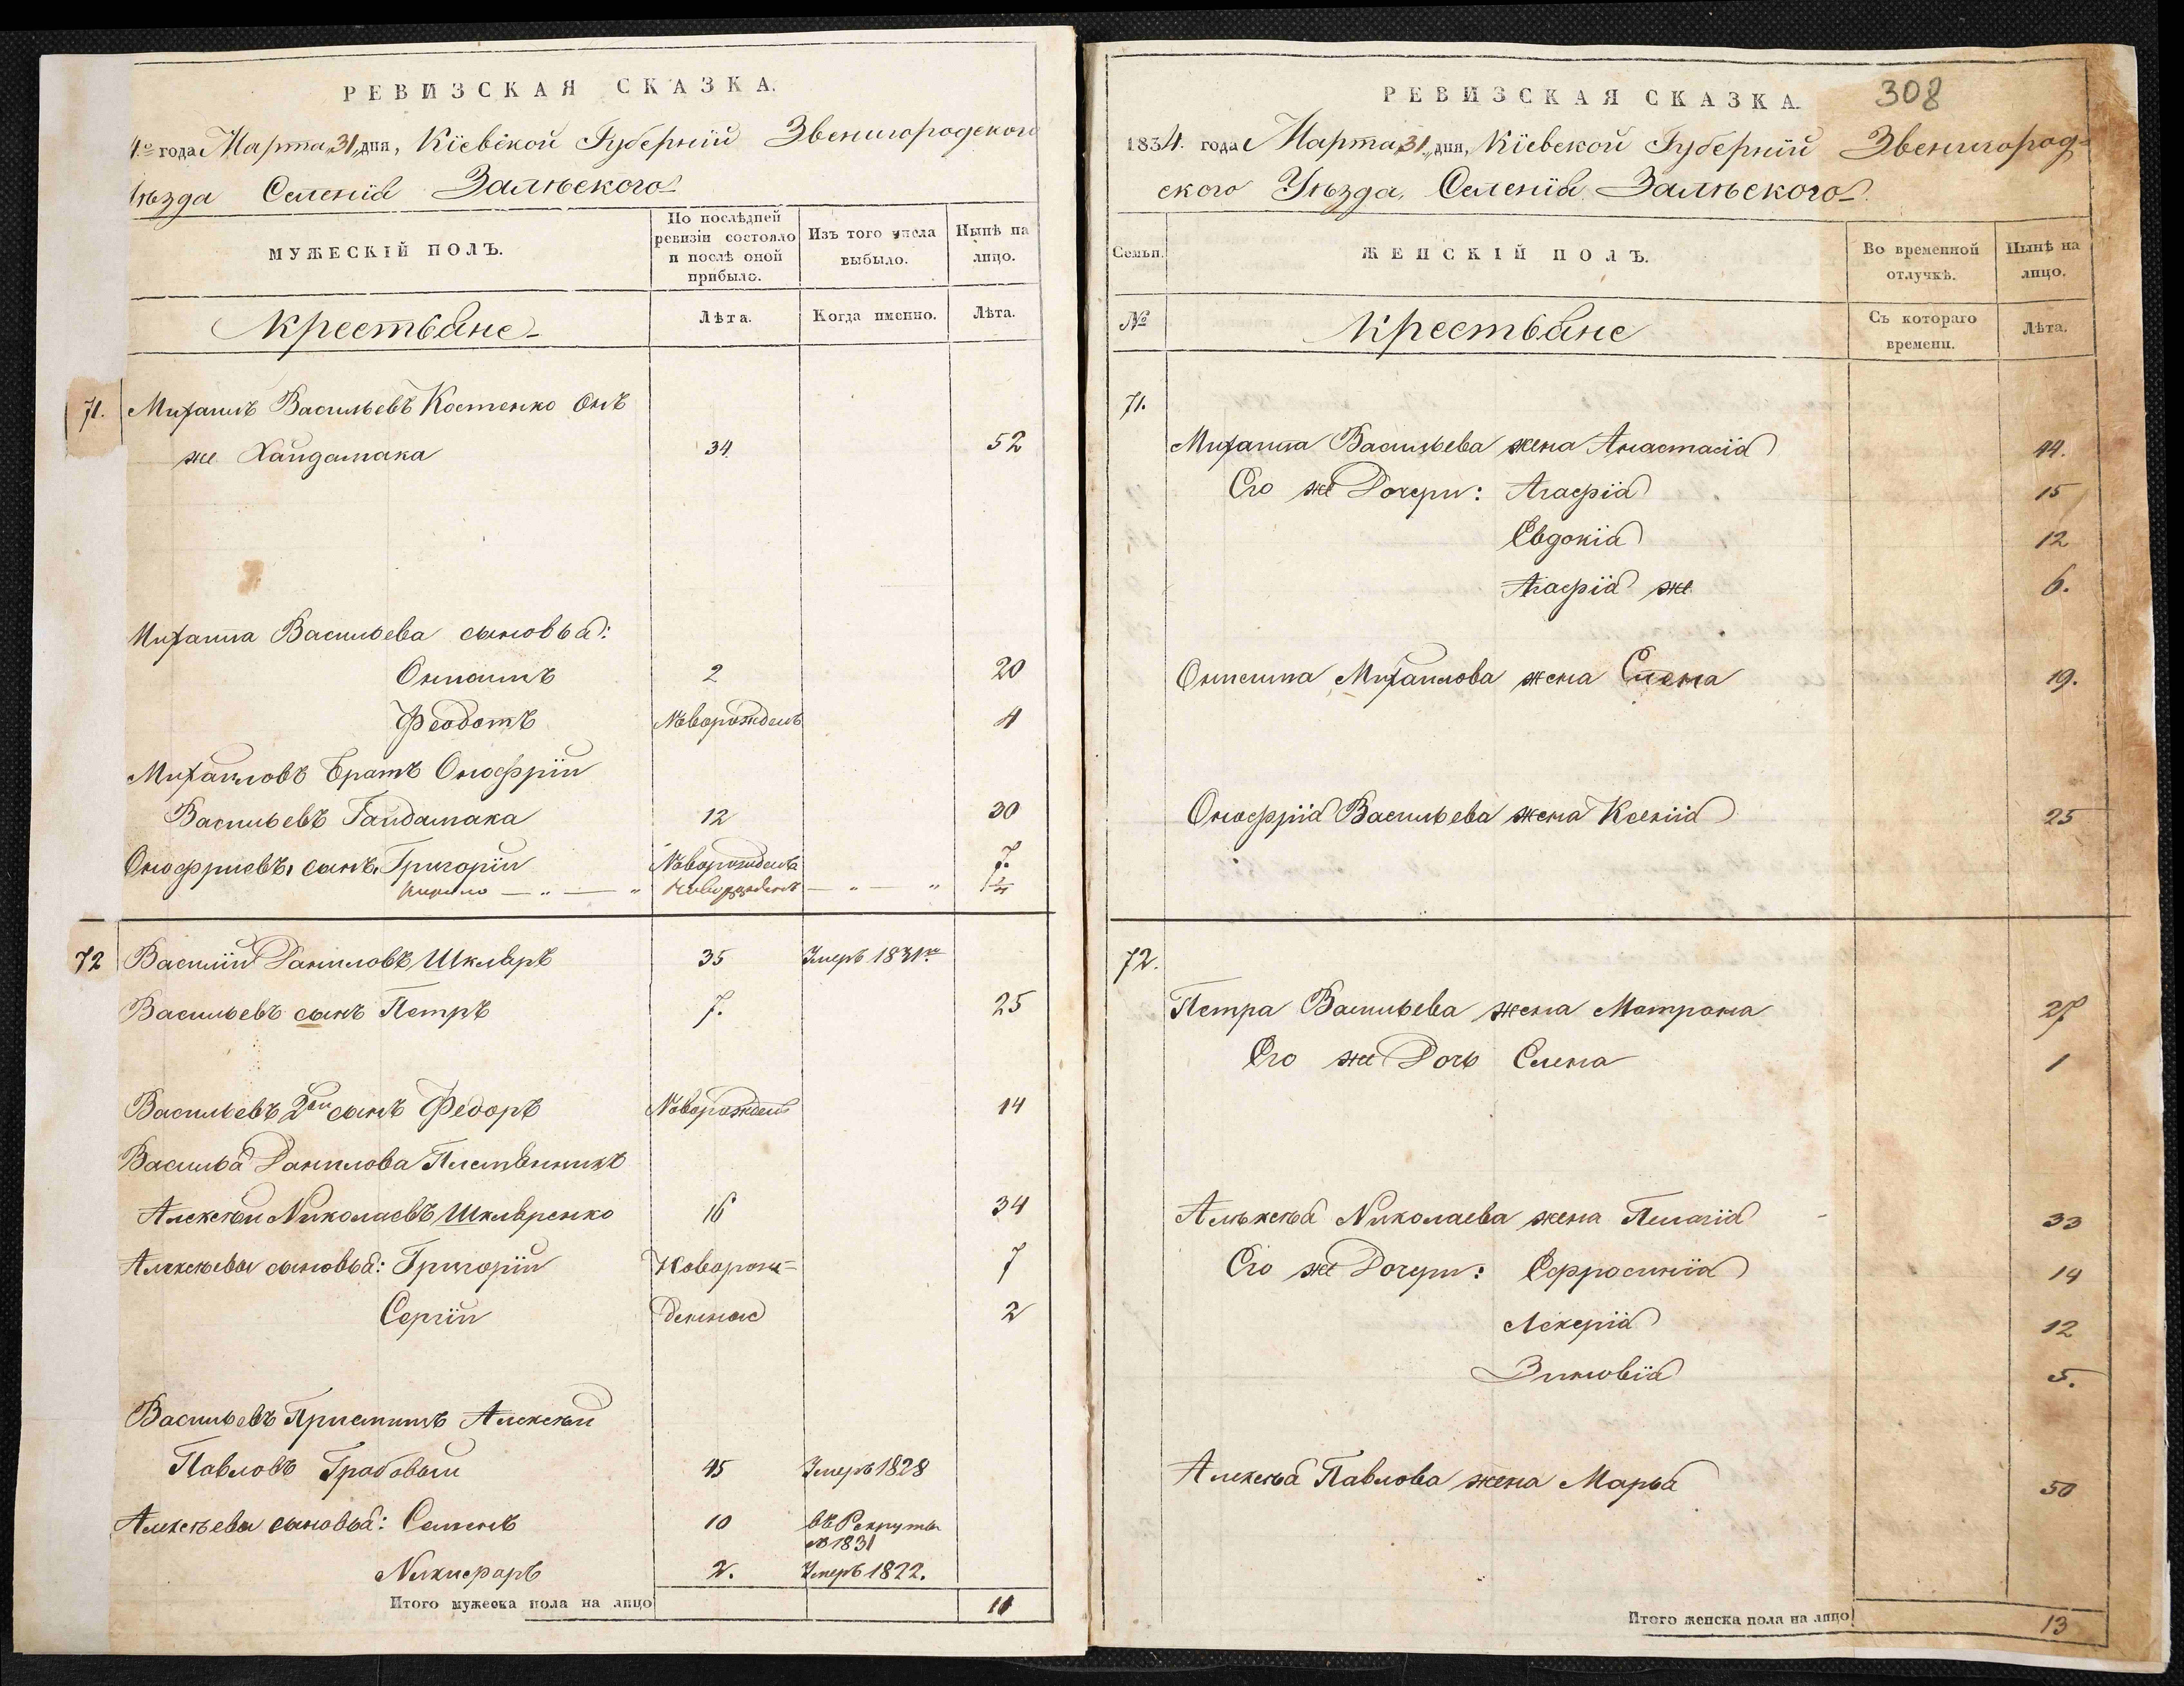 РЕВИЗСКАЯ СКАЗКА.
4го года Марта „31„ дня, Кіевской Губерніи Звенигородского
Уѣзда Селенія Залѣского
МУЖЕСКІЙ ПОЛЪ.
По послѣдней ревизіи состояло и послѣ оной прибыло.
Изъ того числа выбыло.
Нынѣ на лицо.
Крестьяне
Лѣта.
Когда именно.
Лѣта.
71. Михаилъ Васильевъ Костенко Онъ
же Хайдамака 34 52
Михаила Васильева сыновья:
2 20
Феодотъ Новорожденъ 4
Михаиловъ Братъ Онофрій
Васильевъ Гайдамака 12 30
Онофріевъ сынъ Григорій Новорожденъ 7.
Кирило — „ — „ Новорожденъ — „ — „
72 Василій Даниловъ Шкляръ 35 Умеръ 1831го
Васильевъ сынъ Петръ 7. 25
Васильевъ 2ой сынъ Федоръ Новорожденъ 14
Василья Данилова Племянникъ
Алексѣй Николаевъ Шкляренко 16 34
Алексѣевы сыновья: Григорій Новорож= 7
Сергій денные 2
Васильевъ Приемишъ Алексѣй
Павловъ Грабовый 45 Умеръ 1828
Алексѣевы сыновья: Семенъ 10 въ Рекруты
в 1831
Никифоръ 2. Умеръ 1822.
Итого мужеска пола на лицо 11
РЕВИЗСКАЯ СКАЗКА.
308
1834. года Марта „31„ дня, Кіевской Губерніи Звенигород=
ского Уѣзда, Селенія Залѣского
Семьи.
ЖЕНСКІЙ ПОЛЪ.
Во временной отлучкѣ.
Нынѣ на лицо.
№
Крестьяне
Съ котораго времени.
Лѣта.
71.
Михаила Васильева жена Анастасія 44.
Его же Дочери: Агафія 15
Евдокія 12
Агафія же 6.
Михаилова жена Елена 19.
Онофрія Васильева жена Ксенія 25
72.
Петра Васильева жена Матрона 27
Его же Дочь Елена 1
Алѣксѣя Николаева жена Пелагія 33
Его же Дочери: Ефросинія 14
Лекерія 12
Зиновія 5.
Алексѣя Павлова жена Марья 50
Итого женска пола на лицо 13